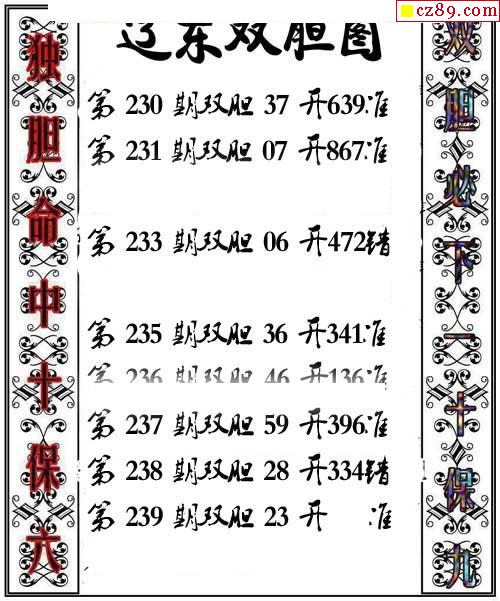 cz89.com
辽东双胆图
独胆命中十保六
第 230 期双胆 37 开639准
第 231 期双胆 07 开867准
第 233 期双胆 06 开472错
第 235 期双胆 36 开341准
第 236 期双胆 46 开136准
第 237 期双胆 59 开396准
第 238 期双胆 28 开334错
第 239 期双胆 23 开 准
双胆必下一十保九